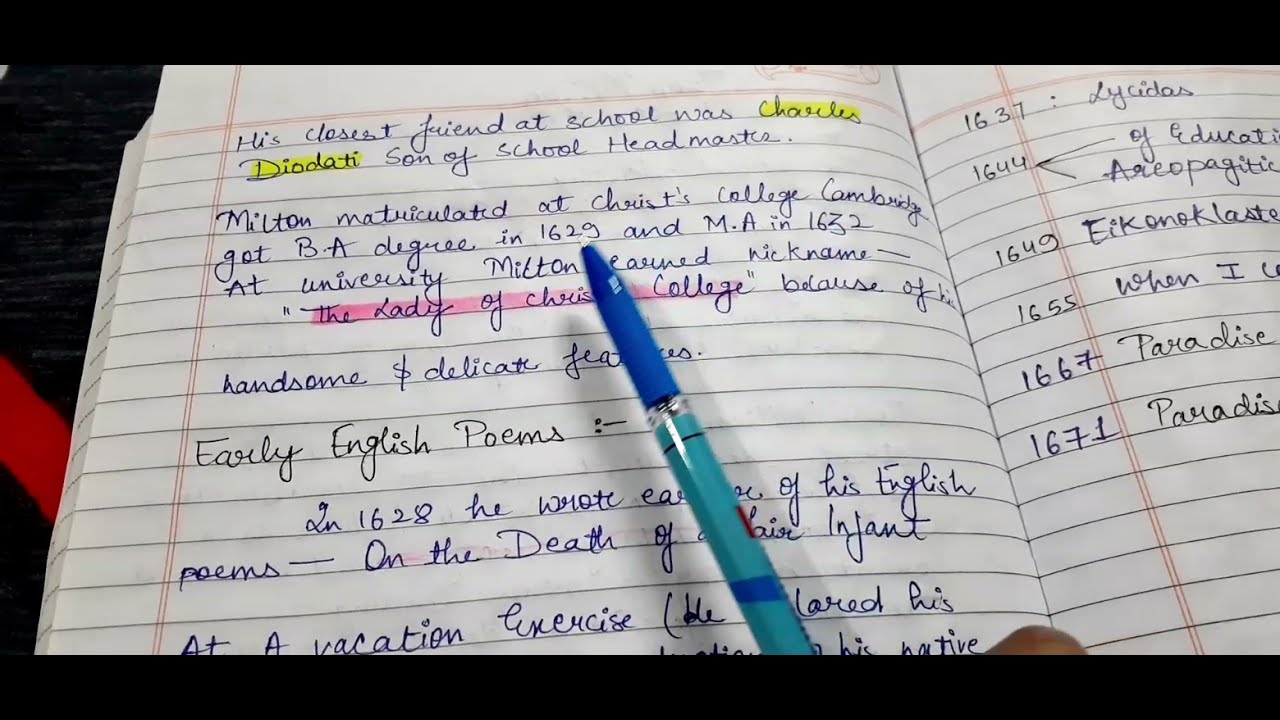 His closest friend at school was Charles
Diodati Son of School Headmaster.
Milton matriculated at Christ's College Cambridge
got B.A degree in 1629 and M.A in 1632
At university Milton earned nickname —
"the Lady of Chris College" because of his
handsome & delicate features.
Early English Poems :-
In 1628 he wrote of his English
poems — On the Death of Fair Infant
At A vacation Exercise (He lared his
his native
1637 : Lycidas
1644 of Educati
Areopagitic
1649 Eikonoklaste
1655 when I
1667 Paradise
1671 Paradis